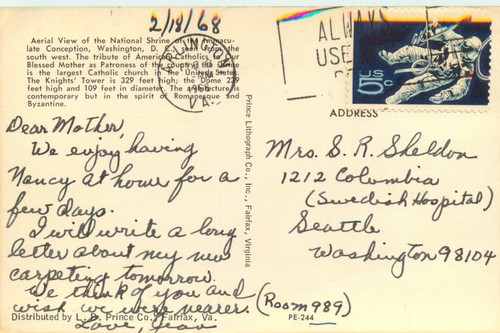 2/18/68
Aerial View of the National Shrine of the Immacu-
late Conception, Washington, D. C., seen from the
south west. The tribute of American Catholics to our
Blessed Mother as Patroness of the country, the Dome
is the largest Catholic church in the United States.
The Knights' Tower is 329 feet high; the Dome 239
feet high and 109 feet in diameter. The architecture is
contemporary but in the spirit of Romanesque and
Byzantine.
Dear Mother,
We enjoy having
Nancy at home for a
few days.
I will write a long
letter about my new
carpeting tomorrow.
We think of you and
wish we were nearer.
Love, Jean
Distributed by L. B. Prince Co., Fairfax, Va.
Prince Lithograph Co., Inc., Fairfax, Virginia
PM
1968
VA.
ALWAYS
USE
US
5c
ADDRESS
Mrs. S. R. Sheldon
1212 Columbia
(Swedish Hospital)
Seattle
Washington 98104
(Room 989)
PE-244